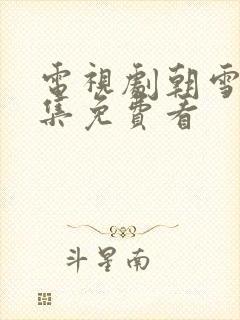 電視劇朝雪
集免費看
斗星南